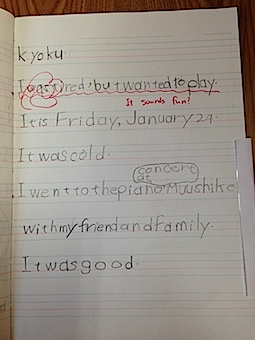 kyoku.
I was tired, but I wanted to play.
It sounds fun!
It is Friday, January 24.
It was cold.
concert
at
I went to the piano Muushike
with my friend and family.
It was good.